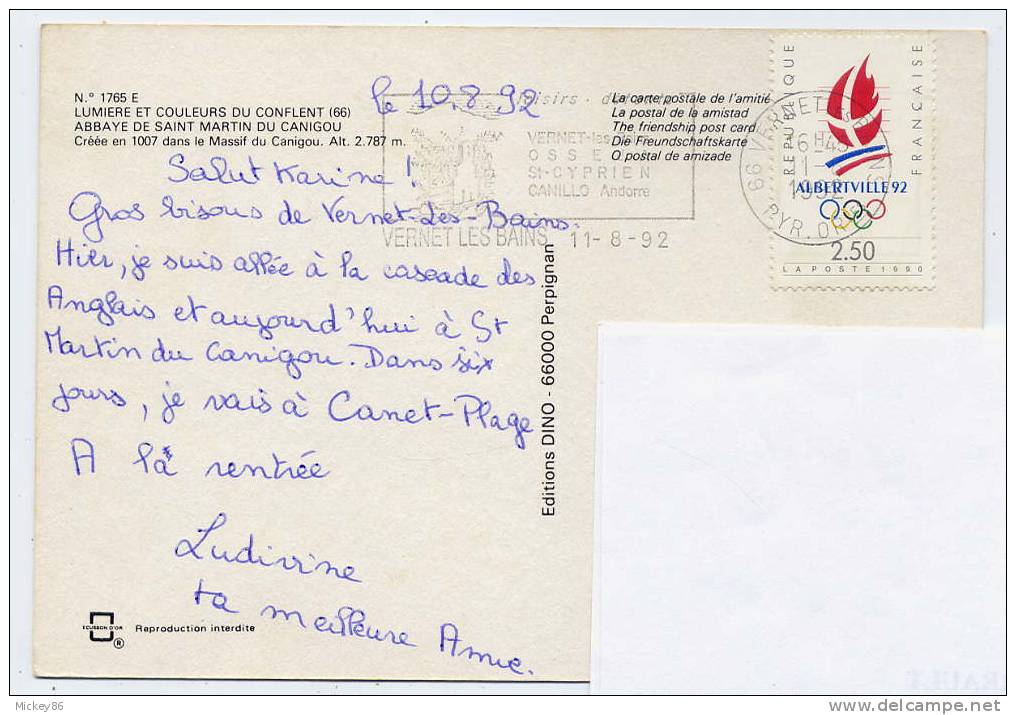 N.º 1765 E
LUMIERE ET COULEURS DU CONFLENT (66)
ABBAYE DE SAINT MARTIN DU CANIGOU
Créée en 1007 dans le Massif du Canigou. Alt. 2.787 m.
le 10.8 92
Salut Karine !
Gros bisous de Vernet-Les-Bains.
Hier, je suis allée à la cascade des
Anglais et aujourd'hui à St
Martin du Canigou. Dans six
jours, je vais à Canet-Plage
A la rentrée
Ludivine
ta meilleure Amie.
ECUSSON D'OR
®
Reproduction interdite
La carte postale de l'amitié
La postal de la amistad
The friendship post card
Die Freundschaftskarte
O postal de amizade
VERNET-les-Bains
OSSE
St-CYPRIEN
CANILLO Andorre
VERNET LES BAINS 11-8-92
Editions DINO - 66000 Perpignan
66 VERNET
16-45
PYR. OR
REPUBLIQUE
FRANÇAISE
ALBERTVILLE 92
2.50
LA POSTE 1990
RAULT
Mickey86
delcampe.net